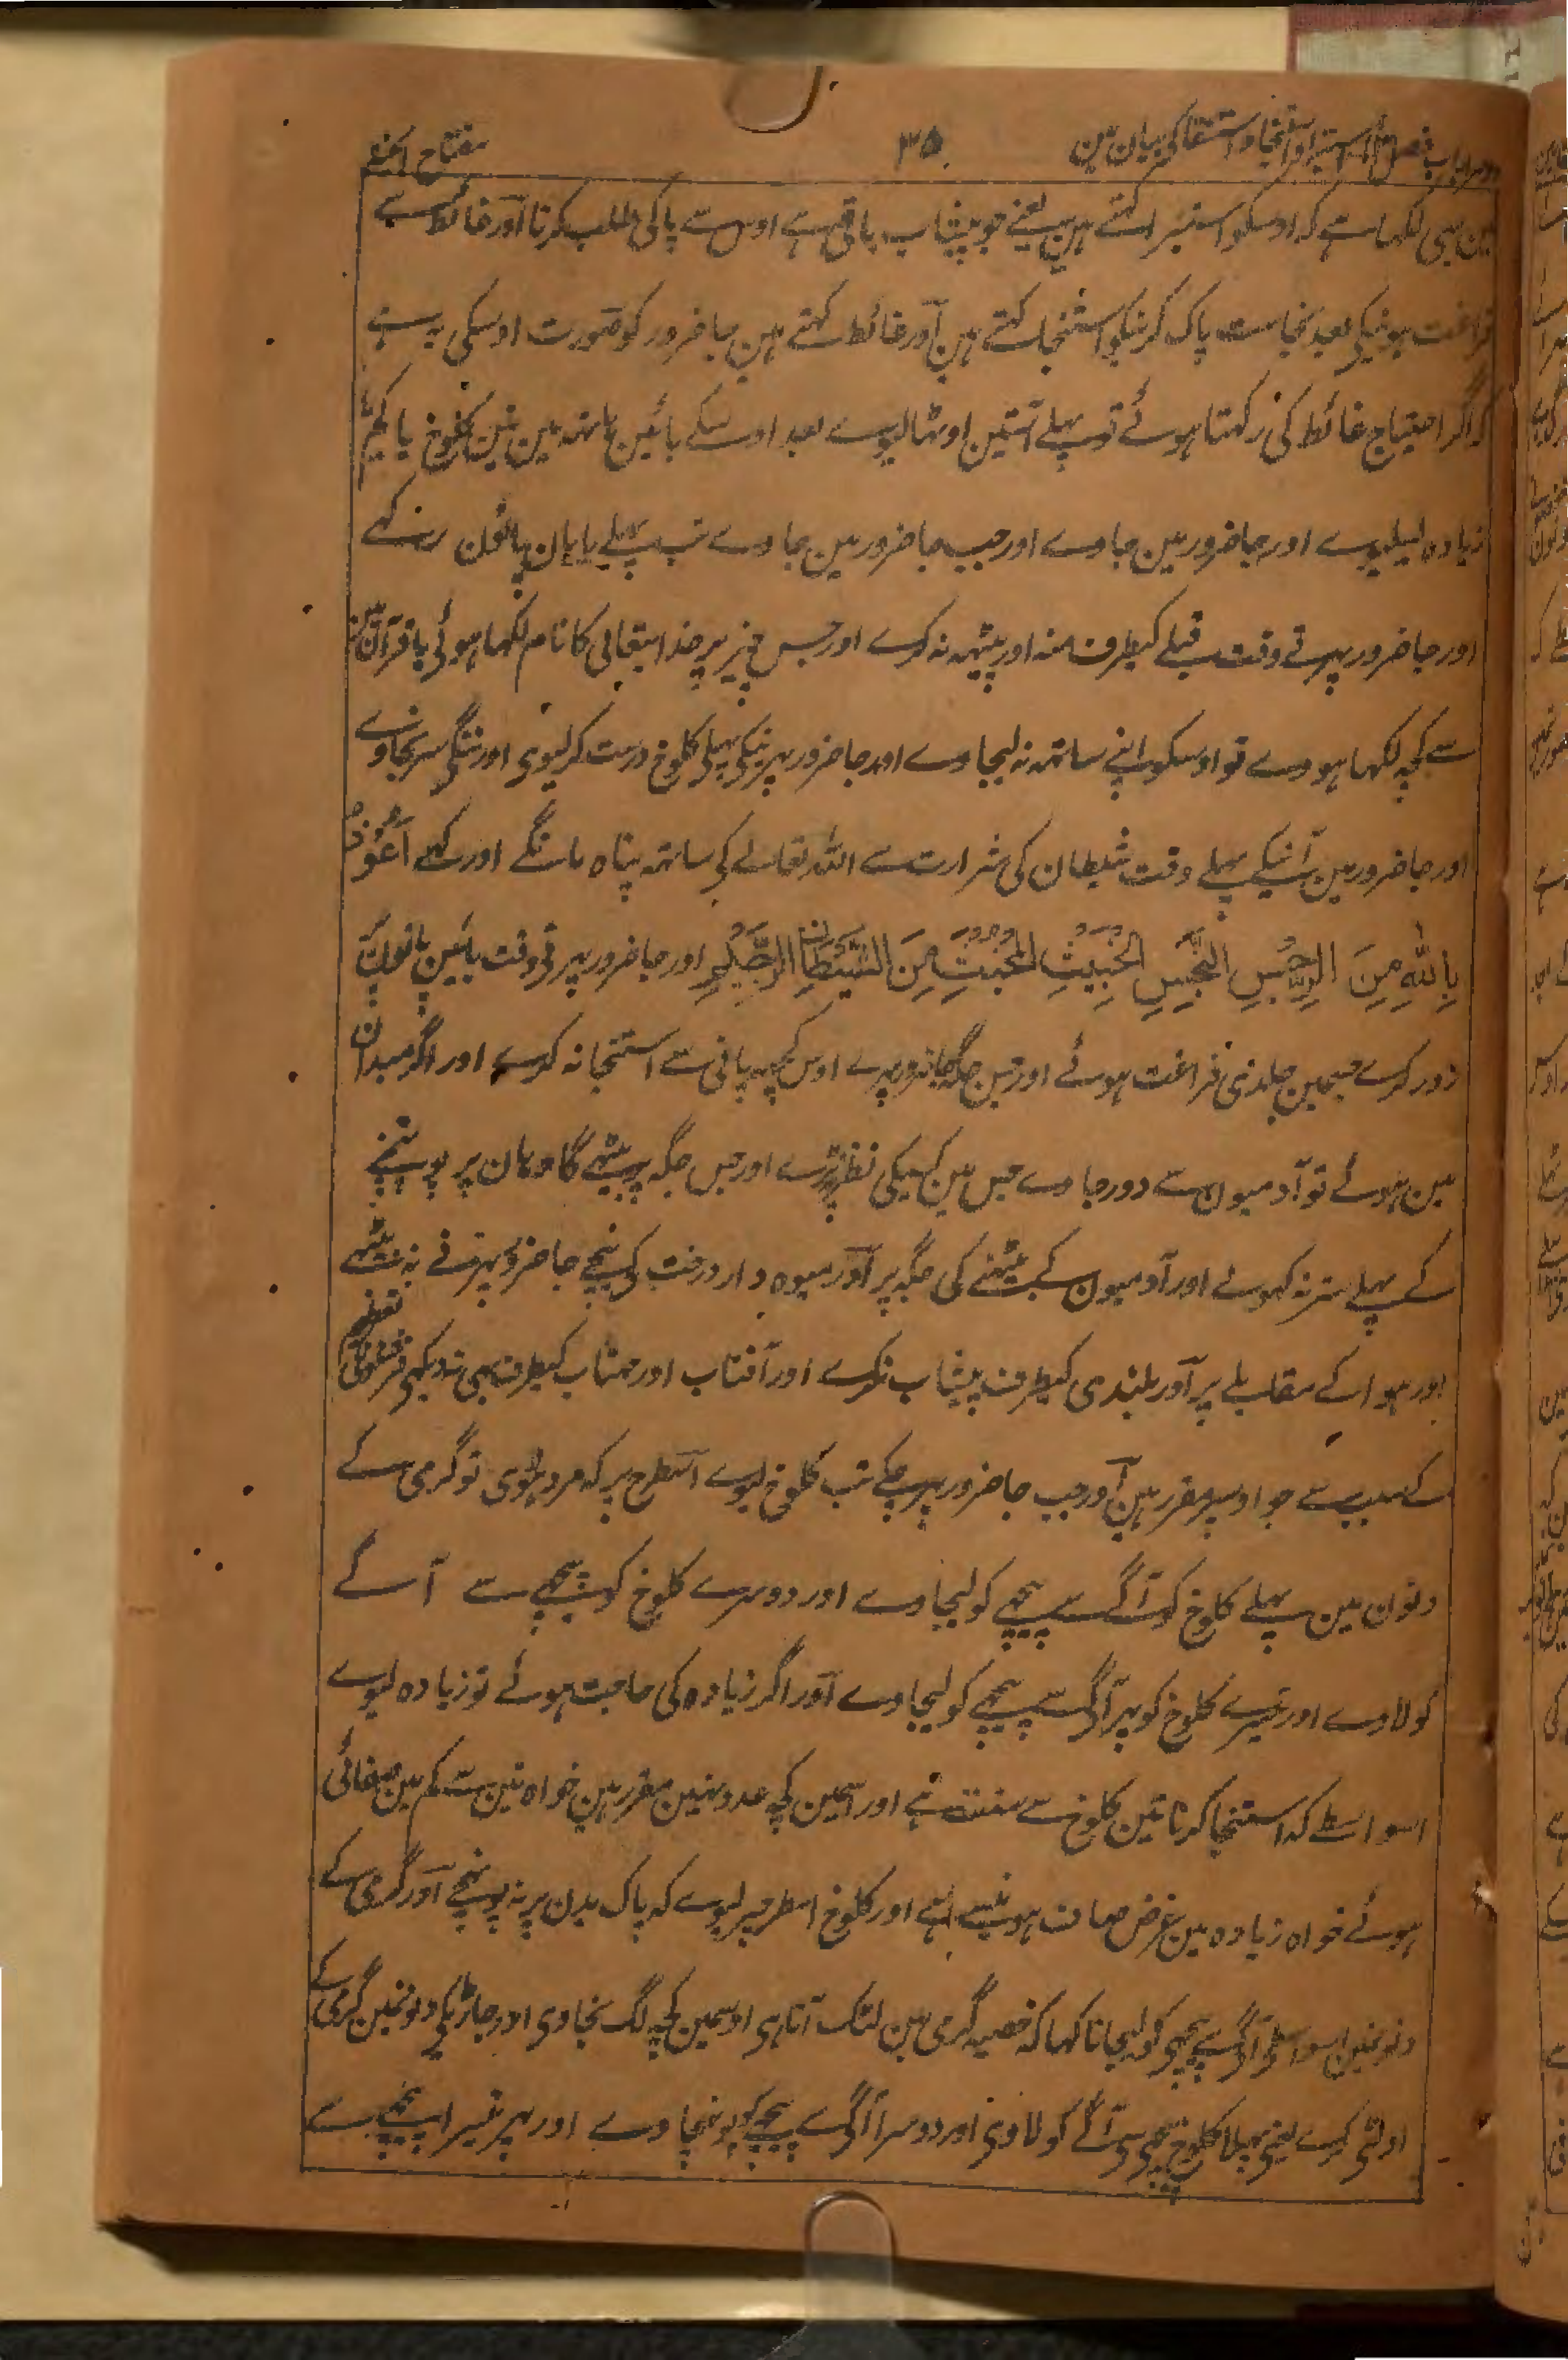 دوسرا باب فصل استبرا و استنجا و استنقا کی بیان مین ۳۵ مفتاح الجنہ
مین بہی لکہا ہے کہ اوسکو استبرا کہتے ہین یعنے جو پیشاب باقی ہے اوس سے پاکی طلب کرنا اور غائط سے
فراغت ہونیکی بعد نجاست پاک کرنیکو استنجا کہتے ہین اور غائط کہتے ہین جاضرور کو صورت اوسکی یہ ہے
کہ اگر احتیاج غائط کی رکہتا ہوئے تو پہلے آستین اوٹہا لیوے بعد اوسکے بائین ہاتہہ مین تین کلوخ یا کچہہ
زیادہ لیلیوے اور جاضرور مین جاوے اور جب جاضرور مین جاوے تب پہلے بایان پانون رکہے
اور جاضرور پہرتے وقت قبلے کیطرف منہ اور پیٹہہ نہ کرے اور جس چیز پر خدایتعالی کا نام لکہا ہوئی یا قرآن مین
سے کچہہ لکہا ہووے تو اوسکو اپنے ساتہہ نہ لیجاوے اور جاضرور پہرنیکی پہلی کلوخ درست کر لیوی اور ننگی سر نجاوے
اور جاضرور مین آنیکے پہلے وقت شیطان کی شرارت سے اللہ تعالے کی ساتہہ پناہ مانگے اور کہے اَعُوْذُ
بِاللّٰهِ مِنَ الرِّجْسِ النَّجِسِ الْخَبِيْثِ الْمُخْبِثِ مِنَ الشَّيْطَانِ الرَّجِيْمِ اور جاضرور پہرتی وقت بائین پانون پر
زور کرے جسمین جلدی فراغت ہوئے اور جس جگہ جاضرور پہرے اوس جگہہ پانی سے استنجا نہ کرے اور اگر میدان
مین ہوئے تو آدمیون سے دور جاوے جس مین کسیکی نظر نپڑے اور جس جگہ پر بیٹہے گا وہان پر پہونچنے
کے پہلے ستر نہ کہولے اور آدمیون کے بیٹہنے کی جگہ پر اور میوہ دار درخت کی نیچے جاضرور پہرنے نہ بیٹہے
اور ہوا کے مقابلے پر اور بلندی کیطرف پیشاب نکرے اور آفتاب اور مہتاب کیطرف بہی ندیکہی فرشتونکی تعظیم
کے سبب سے جو اوسپر مقرر ہین اور جب جاضرور پہر چکے تب کلوخ لیوے اسطرح پر کہ مرد ہووی تو گرمی کے
دنون مین پہلے کلوخ کو آگے سے پیچہے کو لیجاوے اور دوسرے کلوخ کو پیچہے سے آگے
کو لاوے اور تیسرے کلوخ کو پہر آگے سے پیچہے کو لیجاوے اور اگر زیادہ کی حاجت ہوئے تو زیادہ لیوے
اسواسطے کہ استنجا کرنا تین کلوخ سے سنت ہے اور اسمین کچہہ عدد نہین مقرر ہین خواہ تین سے کم مین صفائی
ہوئے خواہ زیادہ مین غرض صاف ہونیسے ہے اور کلوخ اسطرح پر لیوے کہ پاک بدن پر نہ پہونچے اور گرمی کے
دنونمین اسواسطے آگے سے پیچہی کو لیجانا کہا کہ خصیہ گرمی مین لٹک آتا ہی اوسمین کچہہ لگ نجاوی اور جاڑیکی دنونمین گرمی کے
اولٹی کرے یعنی پہلا کلوخ پیچہی سی آگے کو لاوی اور دوسرا آگے سے پیچہے کو پہونچاوے اور پہر تیسرا پیچہے سے